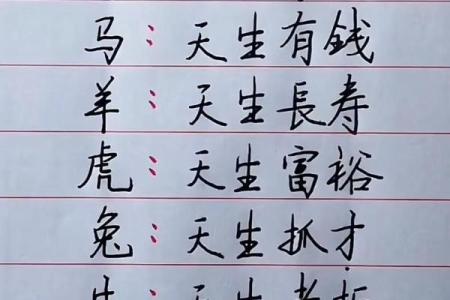 马：天生有銭
羊：天生長寿
虎：天生富裕
兔：天生抓才
牛：天生